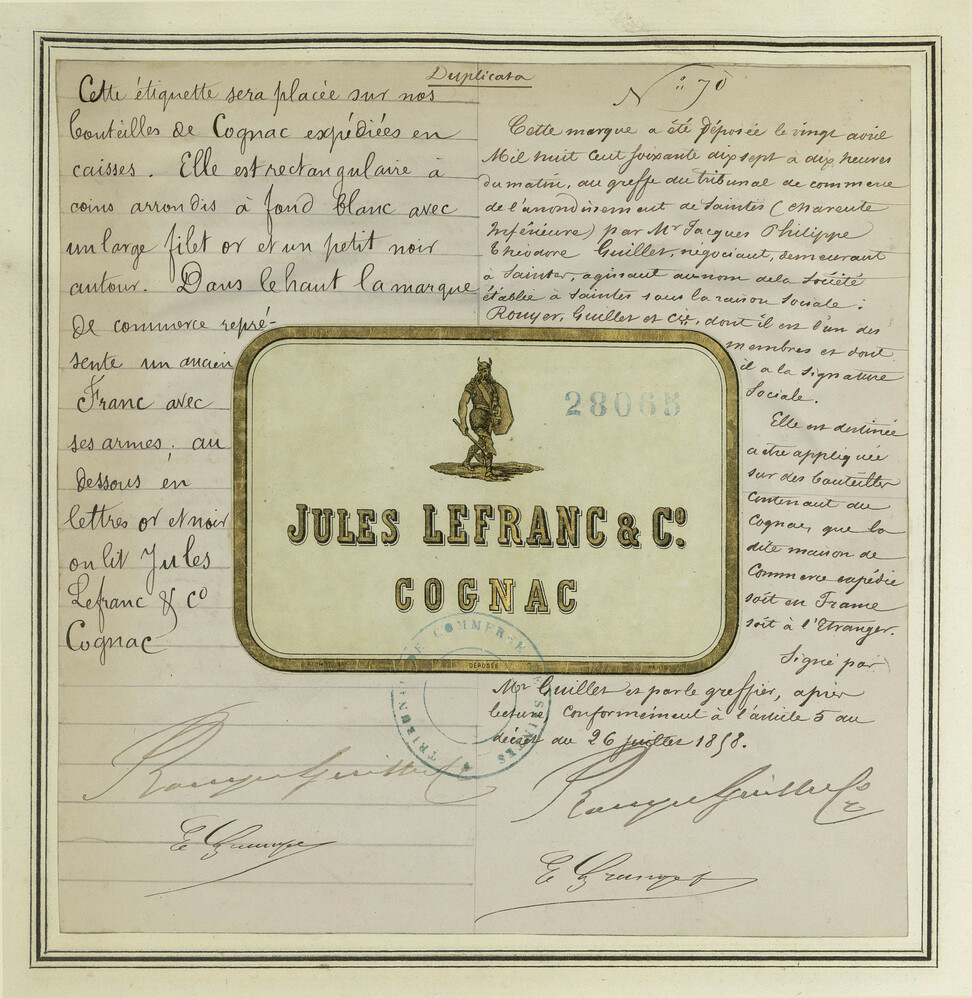 Duplicata
Cette étiquette sera placée sur nos
bouteilles de Cognac expédiées en
caisses. Elle est rectangulaire à
coins arrondis à fond blanc avec
un large filet or et un petit noir
autour. Dans le haut la marque
de commerce repré-
sente un ancien
Franc avec
ses armes, au
dessous en
lettres or et noir
on lit Jules
Lefranc & Co
Cognac
Rouyer Guillet & Co
N° 70
Cette marque a été déposée le vingt avril
Mil huit cent soixante dix sept à dix heures
du matin, au greffe du tribunal de commerce
de l'arrondissement de Saintes (Charente
Inférieure) par Mr Jacques Philippe
Théodore Guillet, négociant, demeurant
à Saintes, agissant au nom de la Société
établie à Saintes sous la raison sociale:
Rouyer, Guillet et Cie, dont il est l'un des
membres et dont
il a la signature
Sociale.
Elle est destinée
a être appliquée
sur des bouteilles
contenant du
Cognac, que la
dite maison de
Commerce expédie
soit en France
soit à l'Etranger.
Signé par
Mr Guillet et par le greffier, après
lecture conformément à l'article 5 du
décret du 26 juillet 1858.
Rouyer Guillet & Co
28065
JULES LEFRANC & Co.
COGNAC
DÉPOSÉ
TRIBUNAL DE COMMERCE DE SAINTES